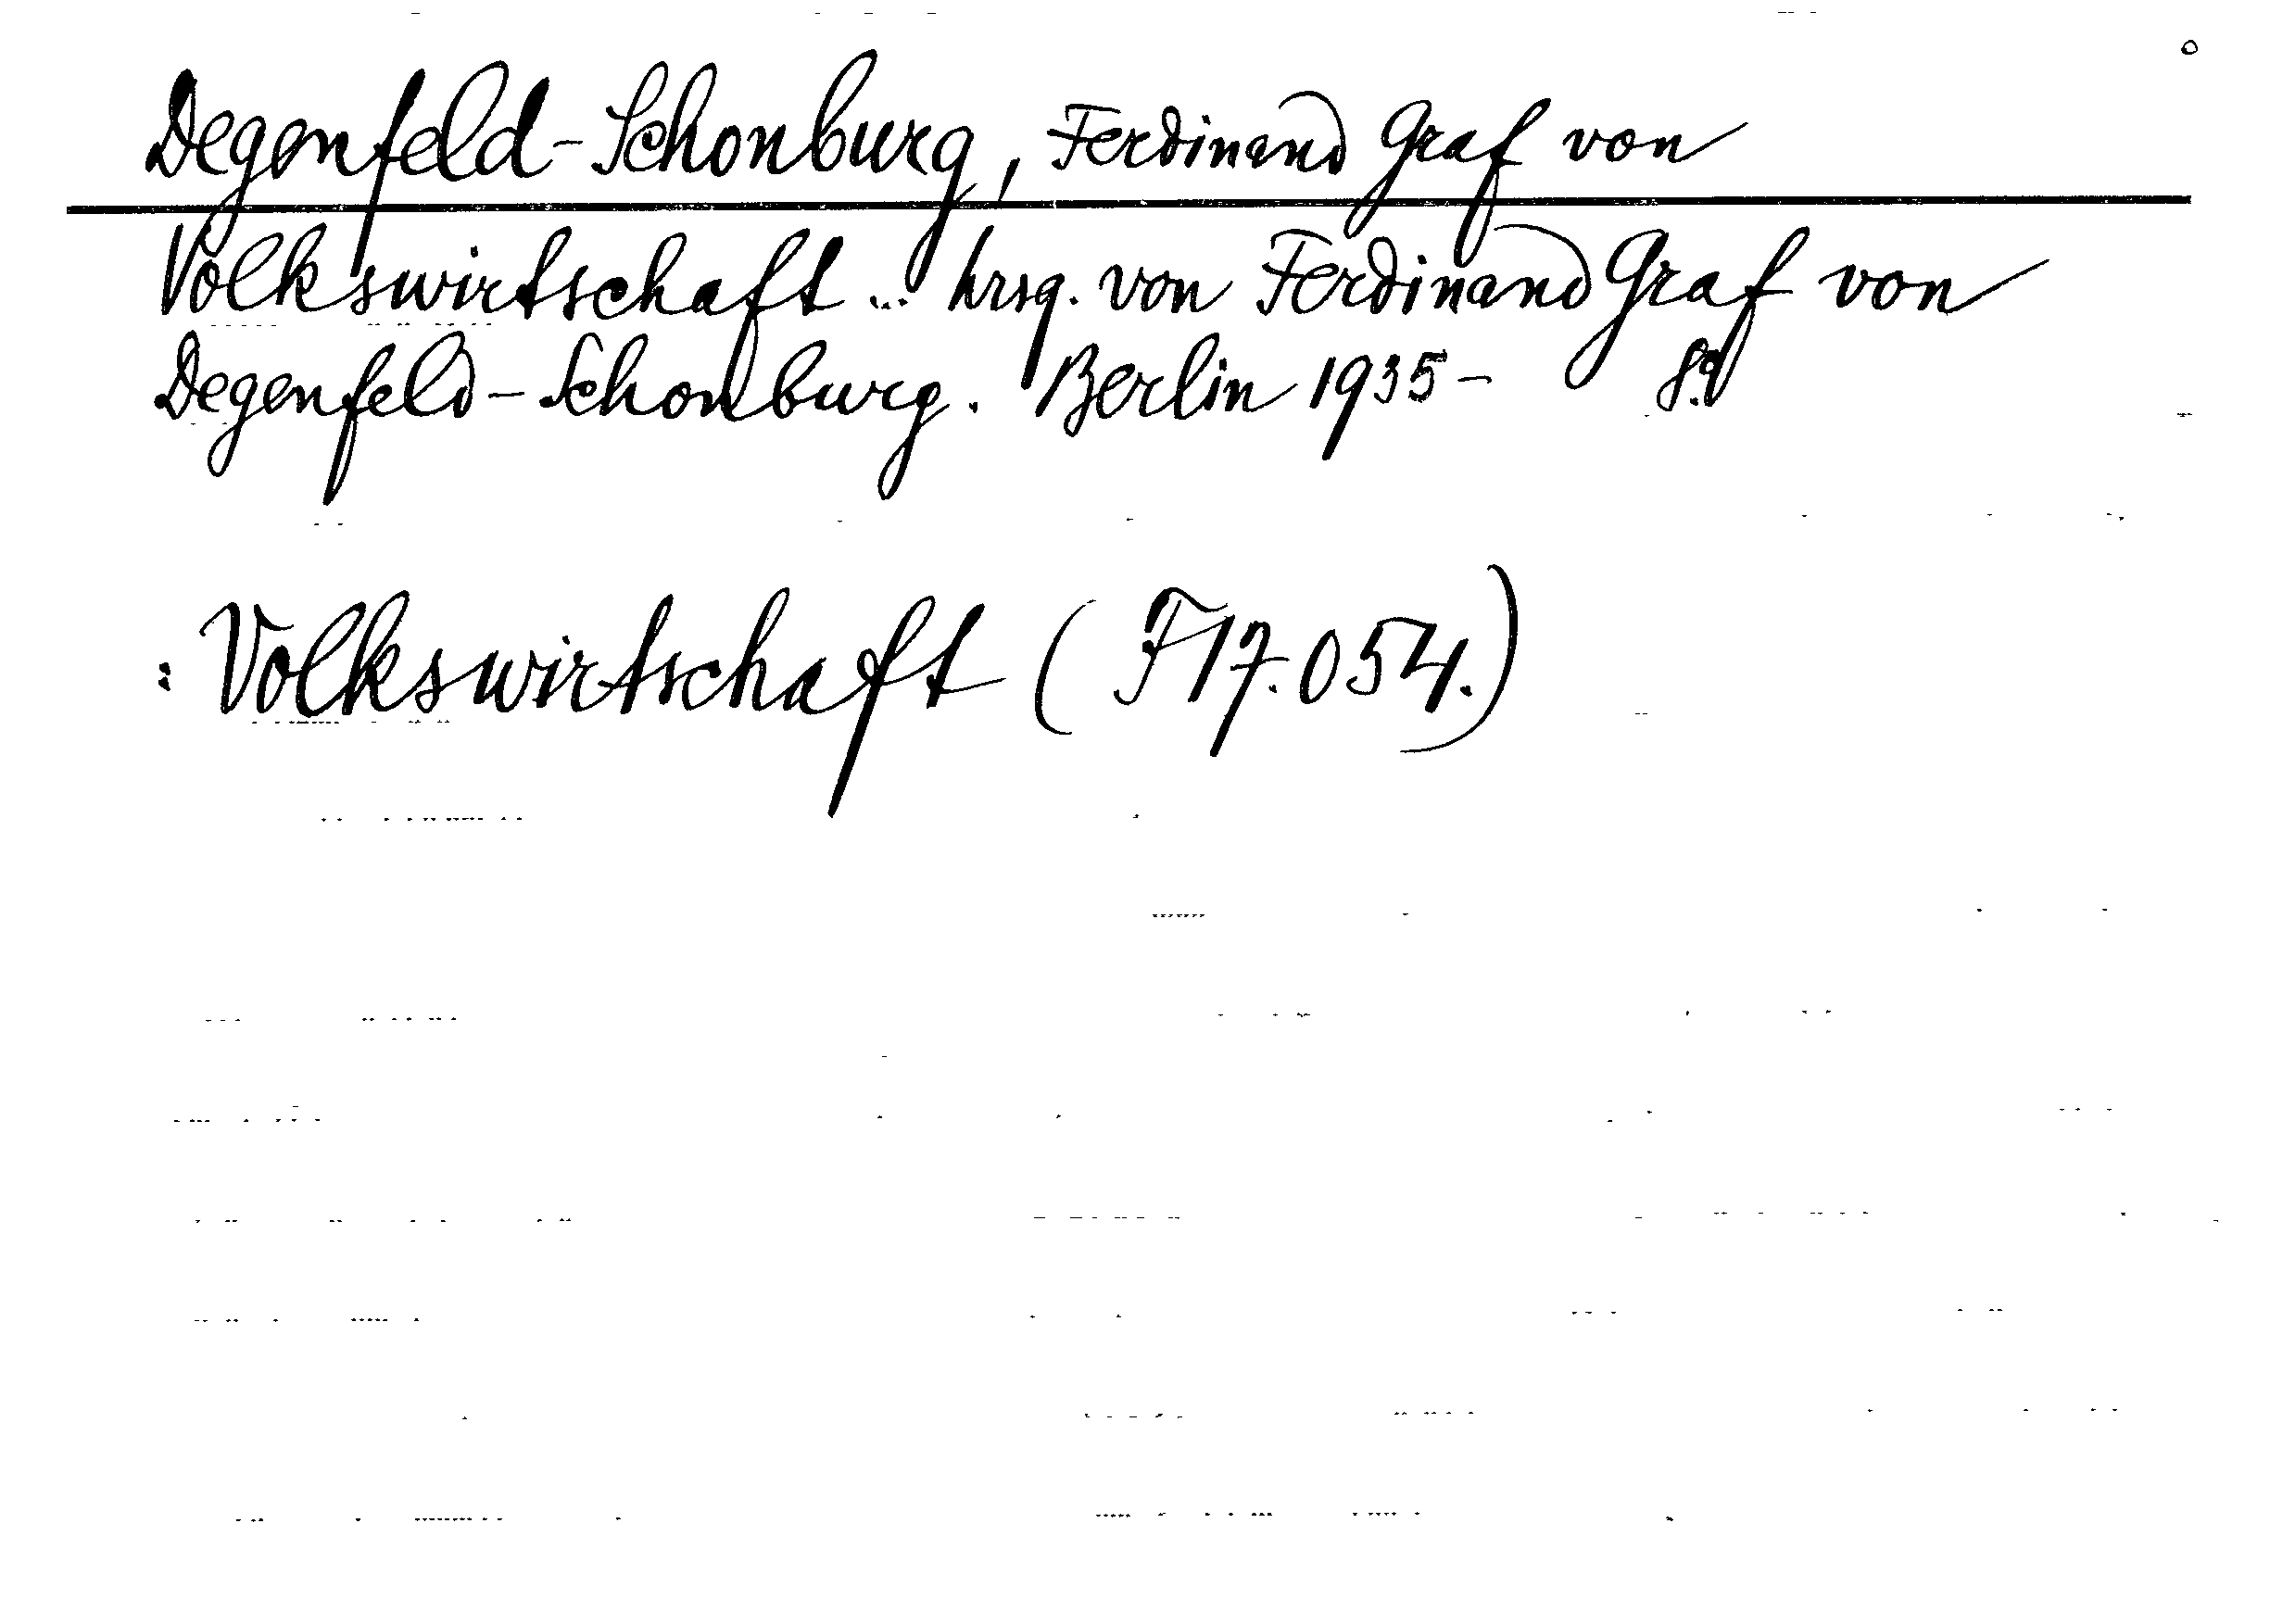 Degenfeld-Schonburg, Ferdinand Graf von
Volkswirtschaft ... hrsg. von Ferdinand Graf von
Degenfeld-Schonburg. Berlin 1935- 8.°
: Volkswirtschaft (F 17.054.)